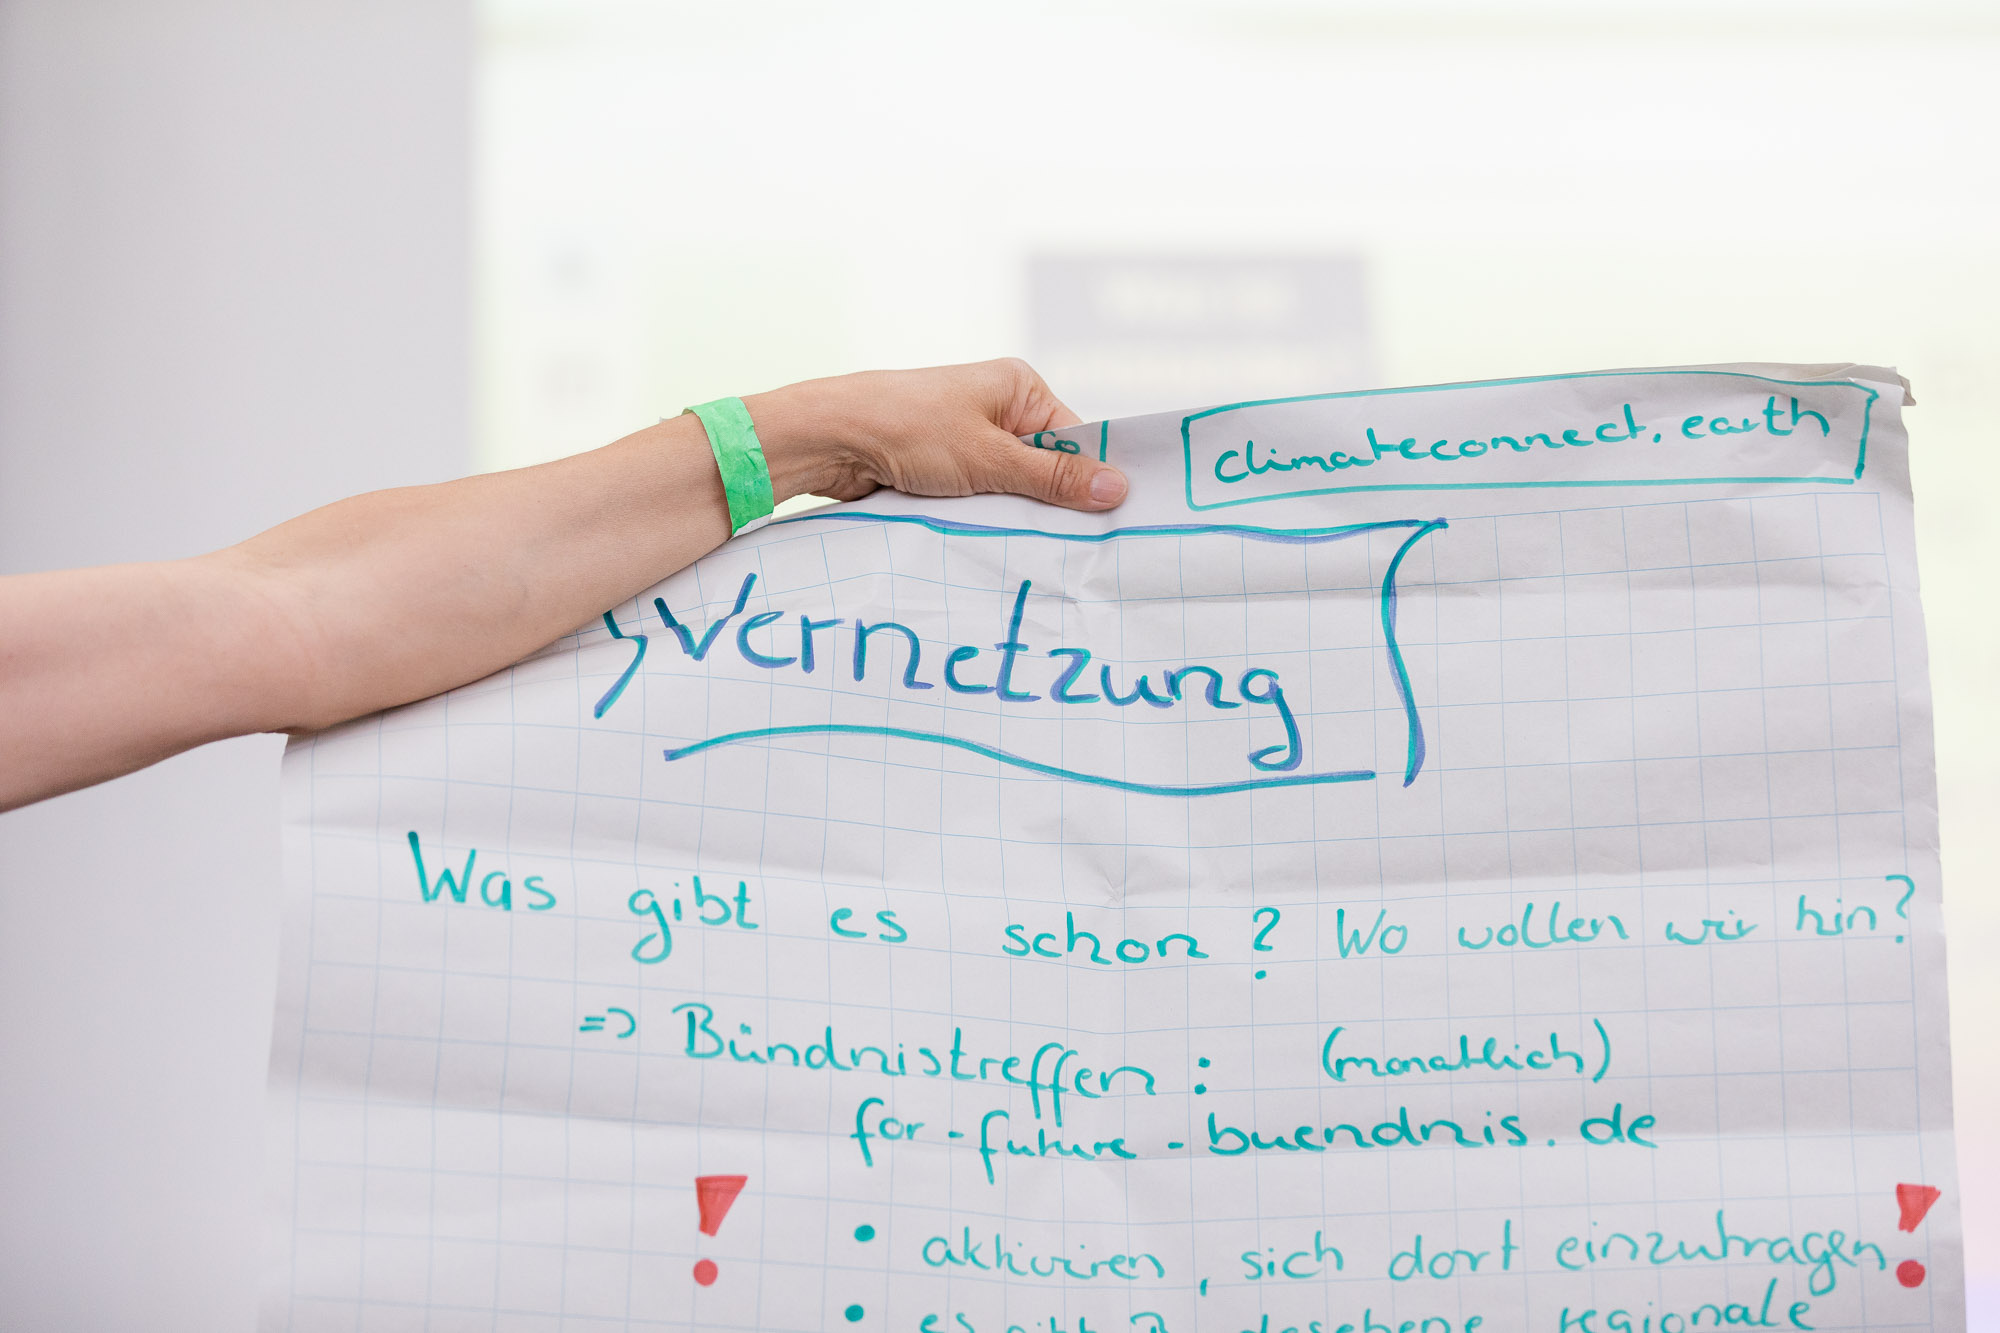 co
climateconnect.earth
Vernetzung
Was gibt es schon? Wo wollen wir hin?
=> Bündnistreffen: (monatlich)
for-future-buendnis.de
! • aktiviren, sich dort einzutragen !
• es gibt regionale